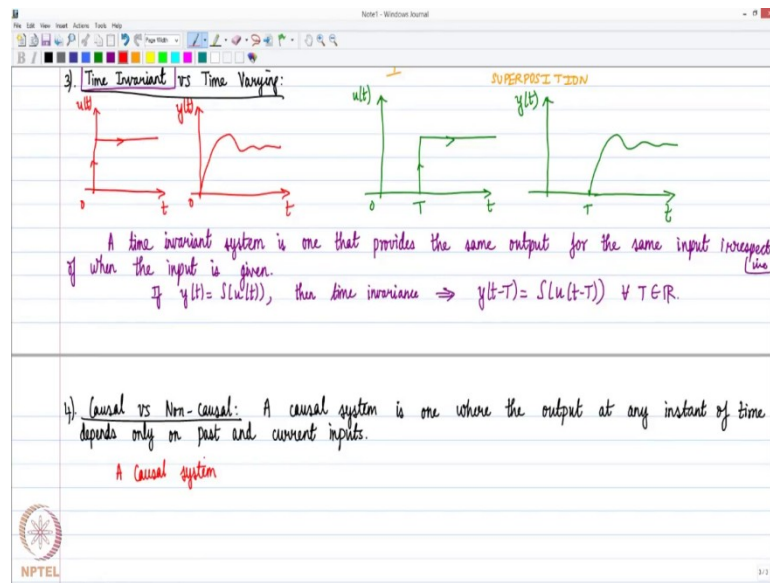 Note1 - Windows Journal
File Edit View Insert Actions Tools Help
Page Width
B I
SUPERPOSITION
3). Time Invariant vs Time Varying:
u(t) y(t) u(t) y(t)
0 t 0 t 0 T t T t
A time invariant system is one that provides the same output for the same input irrespect
of when the input is given.
If y(t) = S(u(t)), then time invariance ⇒ y(t-T) = S(u(t-T)) ∀ T∈ℝ.
4). Causal vs Non-Causal: A causal system is one where the output at any instant of time
depends only on past and current inputs.
A Causal system
NPTEL